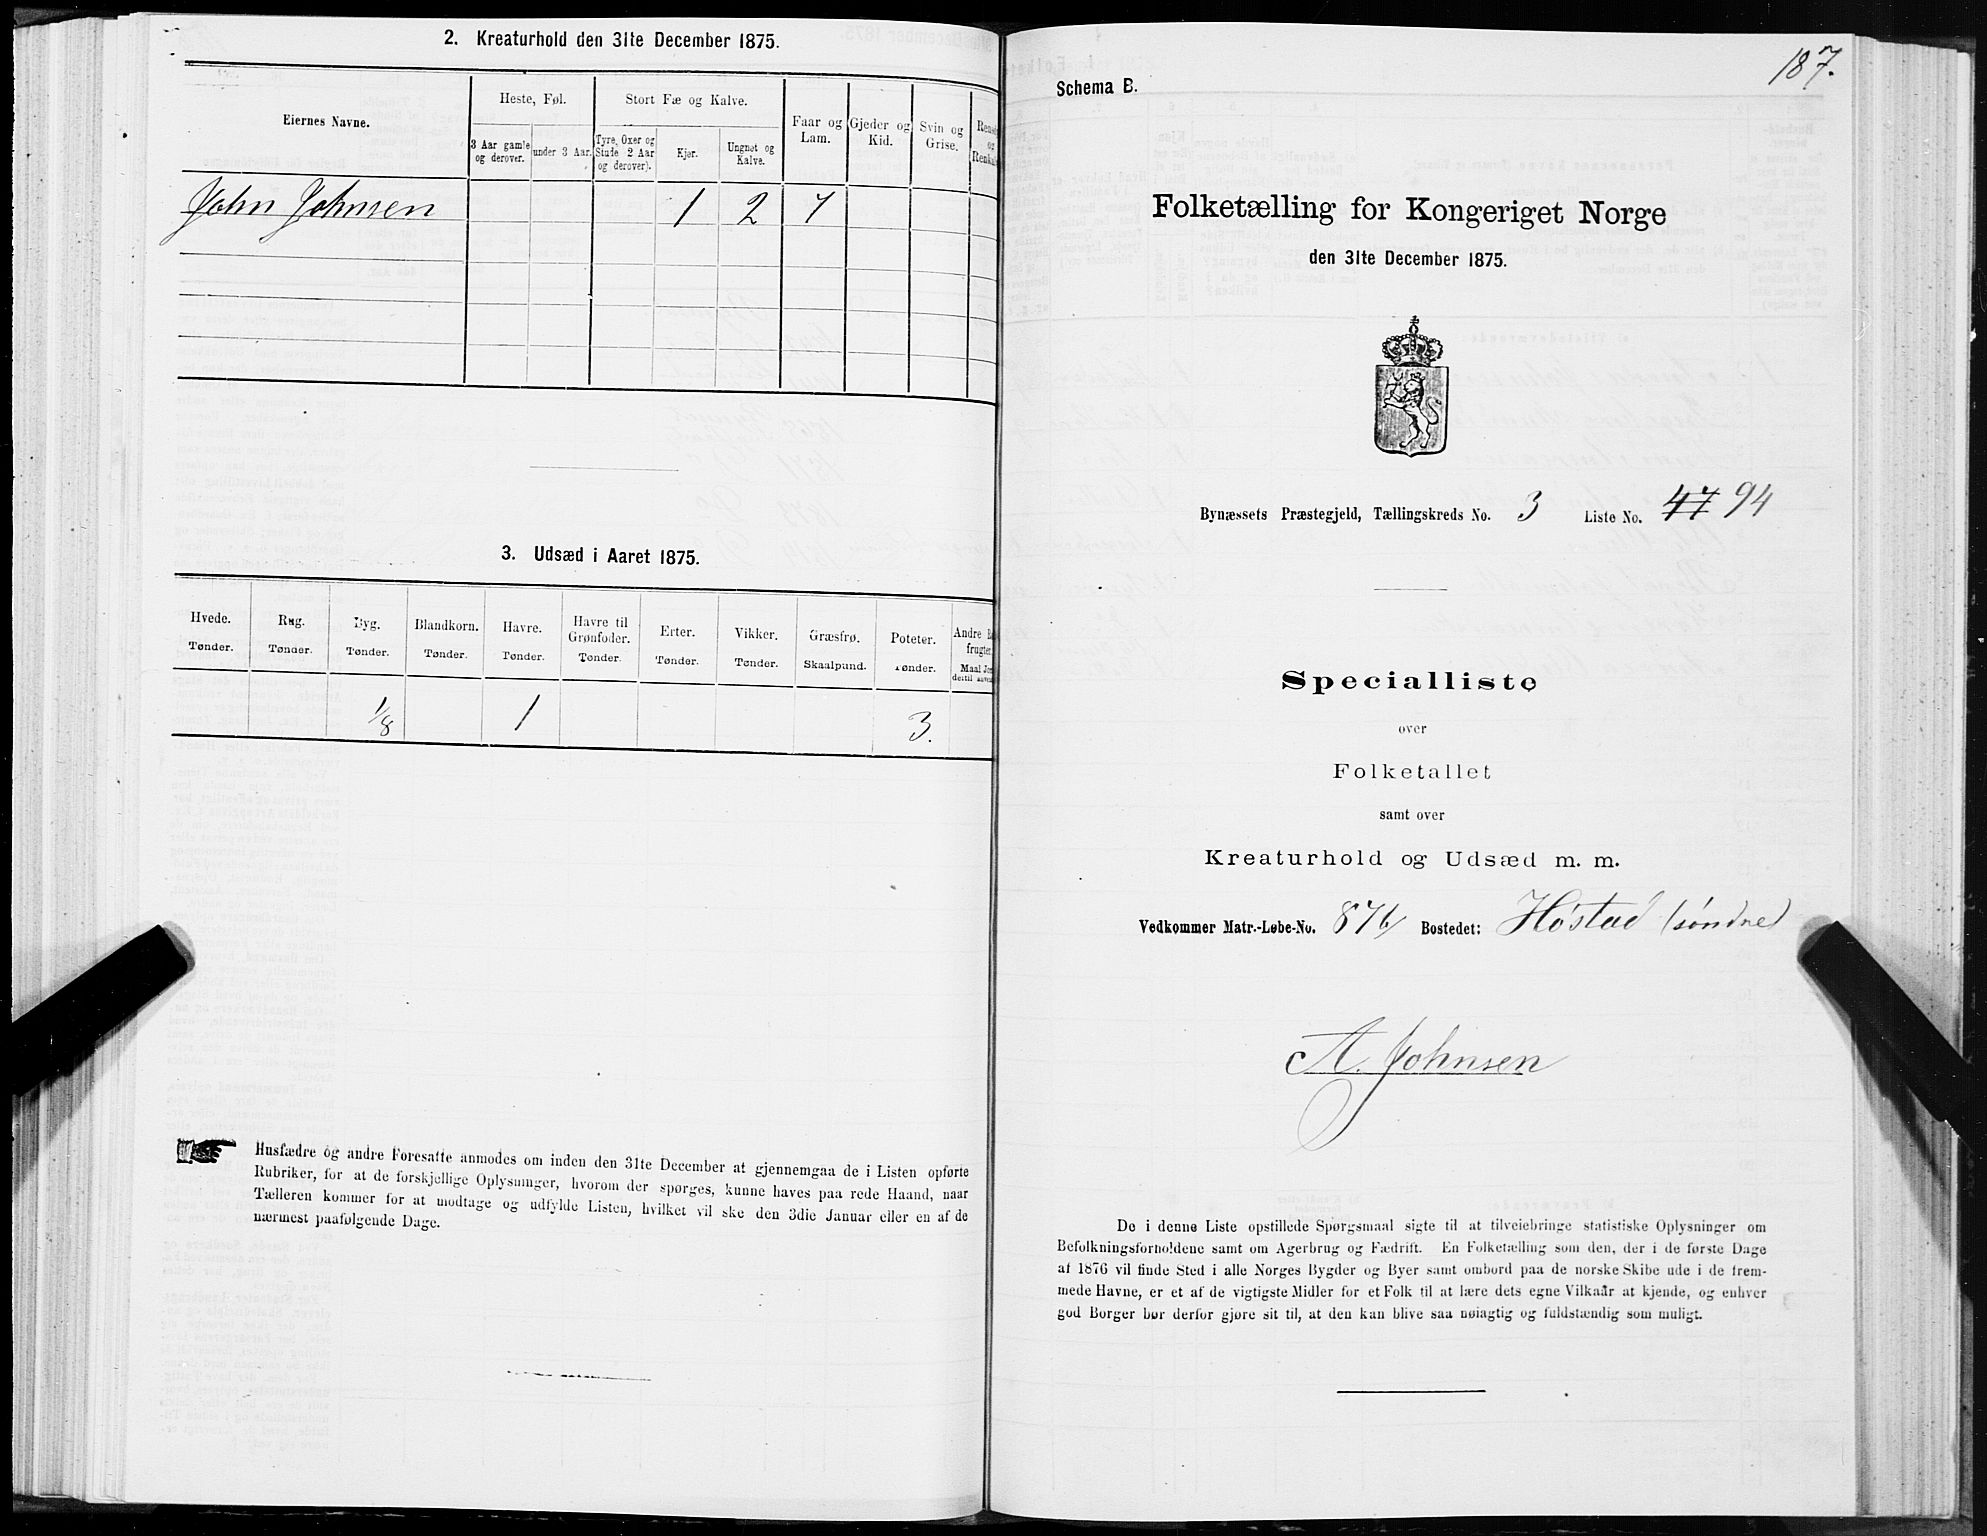 2. Kreaturhold den 31te December 1875.
Eiernes Navne.
Heste, Føl.
Stort Fæ og Kalve.
Faar og Lam.
Gjeder og Kid.
Svin og Grise.
3 Aar gamle og derover.
under 3 Aar.
Tyre, Oxer og Stude 2 Aar og derover).
Kjør.
Ungnøt og Kalve.
John Johnsen 1 2 7
3. Udsæd i Aaret 1875.
Hvede. Rug. Byg. Blandkorn. Havre. Havre til Grønfoder. Erter. Vikker. Græsfrø. Poteter. Andre
Tønder. Tønder. Tønder. Tønder. Tønder. Tønder. Tønder. Tønder. Skaalpund. Tønder.
1/8 1 3.
Husfædre og andre Foresatte anmodes om inden den 31te December at gjennemgaa de i Listen opførte
Rubriker, for at de forskjellige Oplysninger, hvorom der spørges, kunne haves paa rede Haand, naar
Tælleren kommer for at modtage og udfylde Listen, hvilket vil ske den 3die Januar eller en af de
nærmest paafølgende Dage.
187.
Schema B.
Folketælling for Kongeriget Norge
den 31te December 1875.
Bynæssets Præstegjeld, Tællingskreds No. 3 Liste No. 47 94
Specialliste
over
Folketallet
samt over
Kreaturhold og Udsæd m. m.
Vedkommer Matr.-Løbe-No. 87b Bostedet: Høstad (søndre)
A. Johnsen
De i denne Liste opstillede Spørgsmaal sigte til at tilveiebringe statistiske Oplysninger om
Befolkningsforholdene samt om Agerbrug og Fædrift. En Folketælling som den, der i de første Dage
af 1876 vil finde Sted i alle Norges Bygder og Byer samt ombord paa de norske Skibe ude i de frem-
mede Havne, er et af de vigtigste Midler for et Folk til at lære dets egne Vilkaar at kjende, og enhver
god Borger bør derfor gjøre sit til, at den kan blive saa nøiagtig og fuldstændig som muligt.